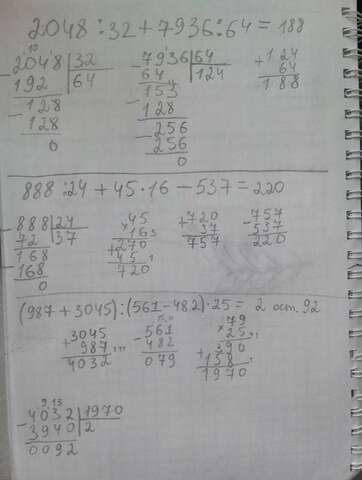 2048 : 32 + 7936 : 64 = 188
10
2048 | 32
- 192 | 64
- 128
128
0
- 7936 | 64
64 | 124
153
- 128
- 256
256
0
+ 124
64
188
888 : 24 + 45 · 16 - 537 = 220
- 888 | 24
72 | 37
- 168
168
0
45
× 16
270
+ 45
720
+ 720
37
757
- 757
537
220
(987 + 3045) : (561 - 482) · 25 = 2 ост. 92
3045
+ 987
4032
- 561
482
079
79
× 25
+ 158
1970
9 13
- 4032 | 1970
3940 | 2
0092